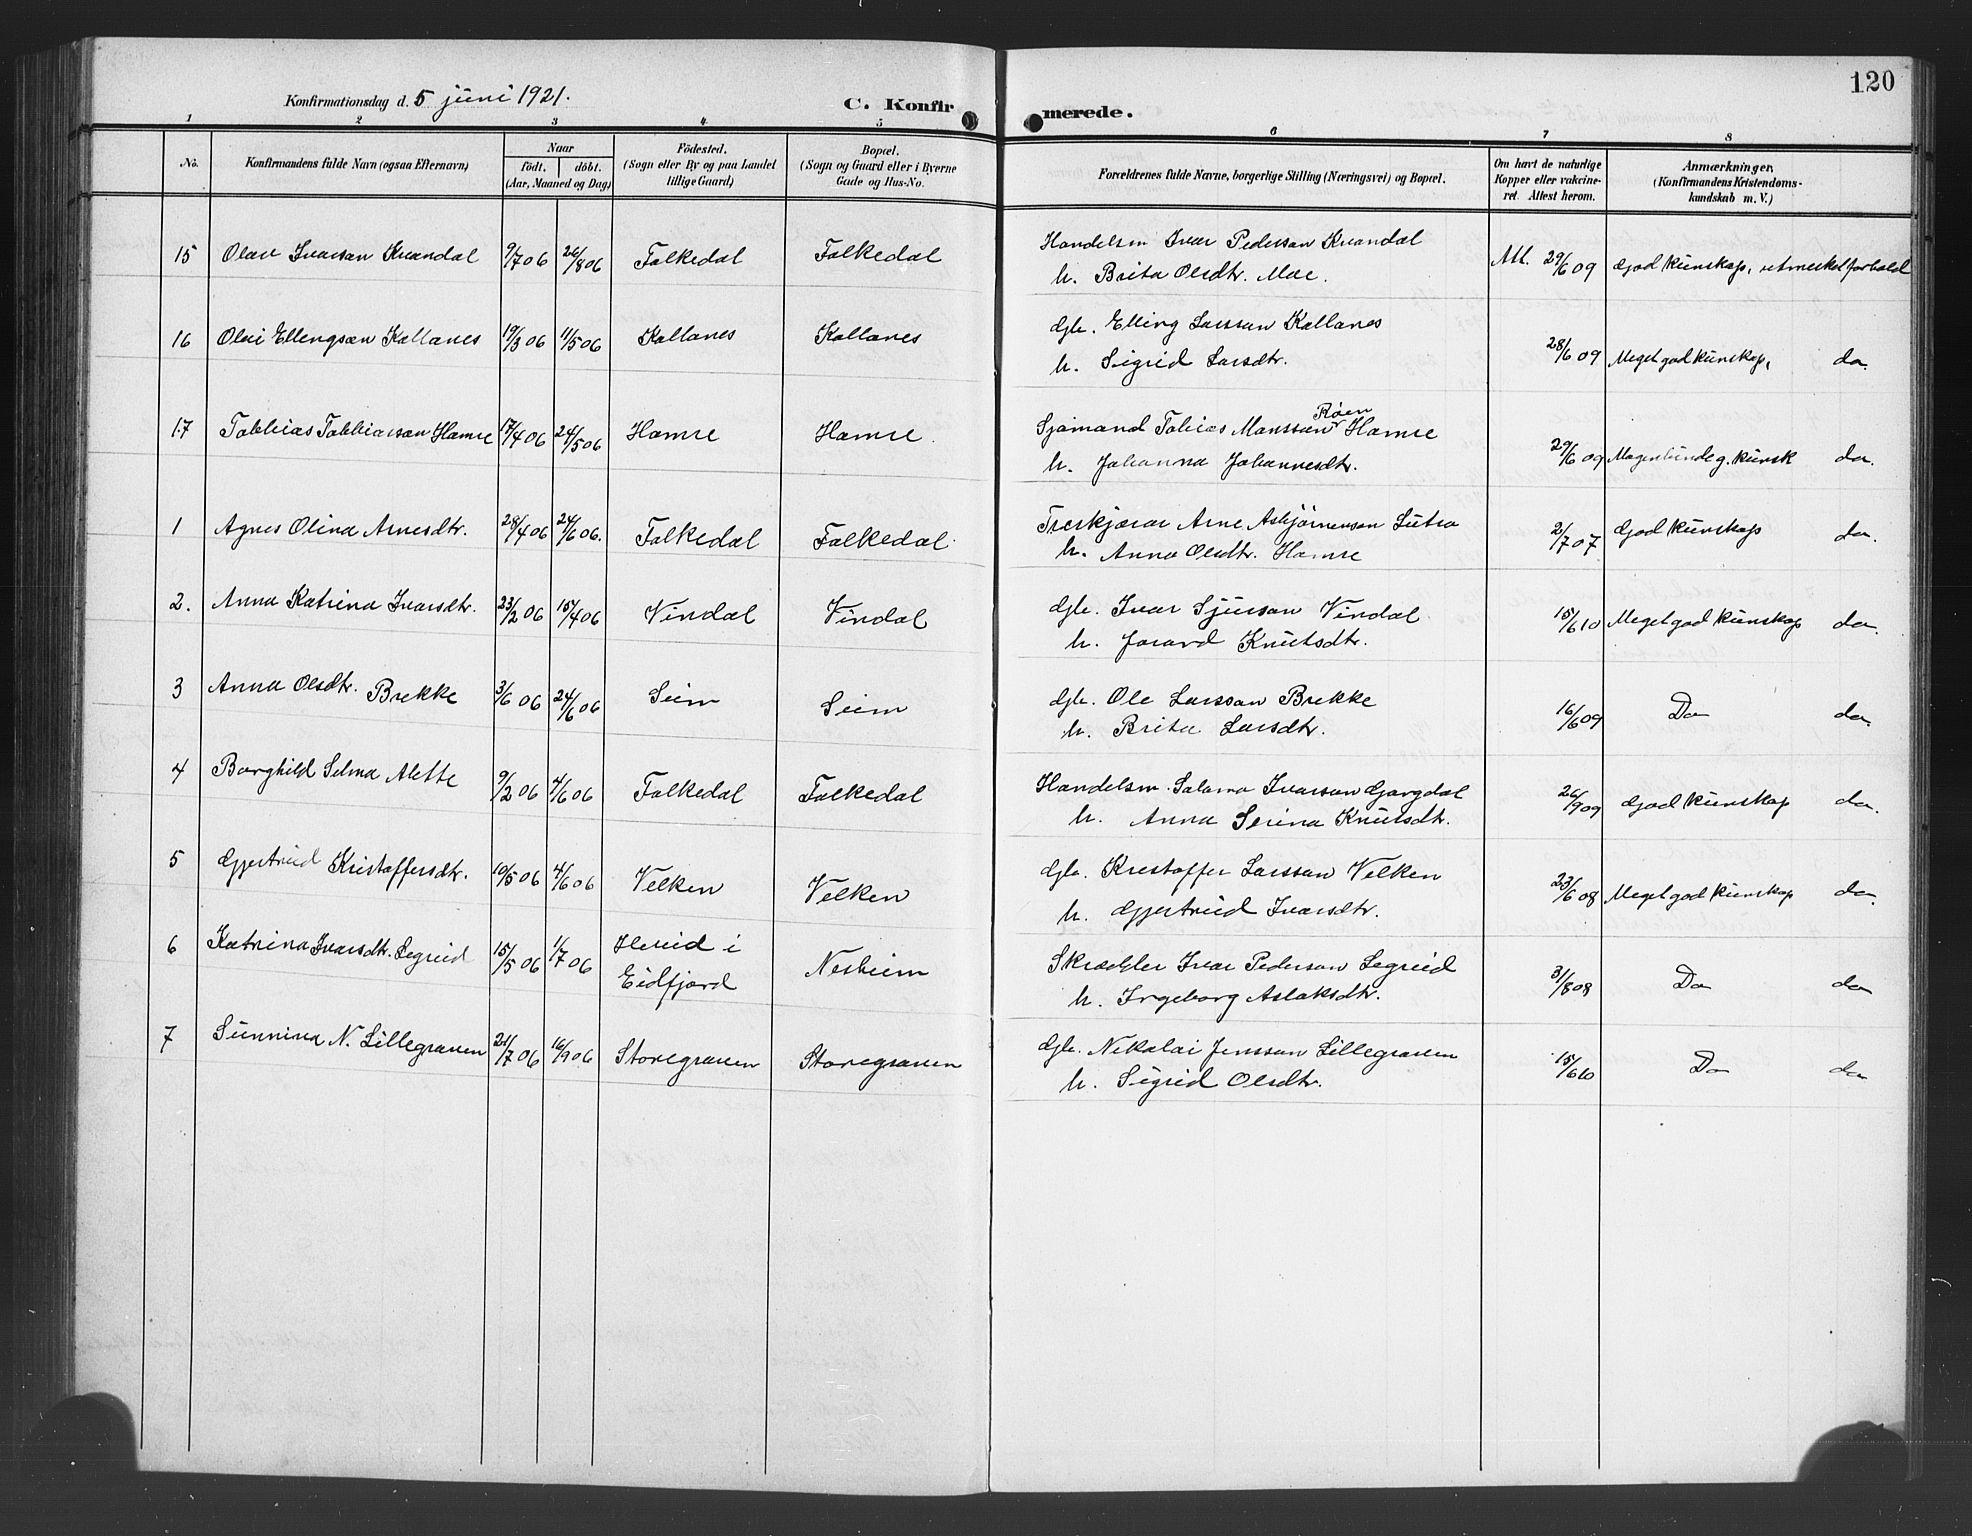 120
Konfirmationsdag d. 5 juni 1921.
C. Konfirmerede.
1 2 3 4 5 6 7 8
No.
Konfirmandens fulde Navn (ogsaa Efternavn)
Naar
födt. döbt.
(Aar, Maaned og Dag)
Födested.
(Sogn eller By og paa Landet
tillige Gaard)
Bopæl.
(Sogn og Gaard eller i Byerne
Gade og Hus-No.
Forældrenes fulde Navne, borgerlige Stilling (Næringsvei) og Bopæl.
Om havt de naturlige
Kopper eller vakcine-
ret. Attest herom.
Anmærkninger.
(Konfirmandens Kristendoms-
kundskab m. V.)
15 Olav Ivarsan Kvandal 9/7 06 26/8 06 Folkedal Folkedal Handelsm Ivar Pedersan Kvandal Att. 29/6 09 God kunskap, utmerket forhold
h. Brita Olsdtr. Moe.
16 Olai Ellengsæn Kollanes 19/3 06 11/5 06 Kollanes Kollanes Gbr. Elling Larssan Kollanes
h. Sigrid Larsdtr. 28/6 09 Meget god kunskap, do.
17 Tobbias Tobbiassan Hamre 17/4 06 24/5 06 Hamre Hamre. Sjømand Tobias Monssan Røen Hamre
h. Johanna Johannesdtr. 29/6 09 g. kunsk do.
1 Agnes Olina Arnesdtr. 28/4 06 24/6 06. Folkedal Folkedal. Træskjærar Arne Asbjørnensan Lutro 2/7 07 God kunskap do.
h. Anna Olsdtr. Hamre
2. Anna Katrina Ivarsdtr. 23/2 06 15/4 06 Vindal Vindal Gbr. Ivar Sjursan Vindal 15/6 10 Meget god kunskap do.
h. Jorand Knutsdtr.
3 Anna Olsdtr. Brekke 3/6 06 24/6 06 Seim Seim Gbr. Ole Larssan Brekke 16/6 09 Do do.
h. Brita Larsdtr.
4 Borghild Selma Alette 9/2 06 4/6 06 Folkedal Folkedal Handelsm. Salamo Ivarsan Gorgdal 26/9 09 God kunskap do.
h. Anna Serina Knutsdtr.
5 Gjertrud Kristoffersdtr. 10/5 06 4/6 06 Velken Velken Gbr. Krestoffer Larssan Velken 23/6 08 Meget god kunskap do.
h. Gjertrud Ivarsdtr.
6 Katrina Ivarsdtr. Legreid 15/5 06 1/7 06 Hereid i Nesheim Skrædder Ivar Pedersan Legreid 31/8 08 Do do
Eidfjord h. Ingeborg Aslaksdtr.
7 Sunniva N. Lillegraven 21/7 06 16/9 06 Storegraven Storegraven Gbr. Nikolai Jenssan Lillegraven 15/6 10 Do do
h. Sigrid Olsdtr.